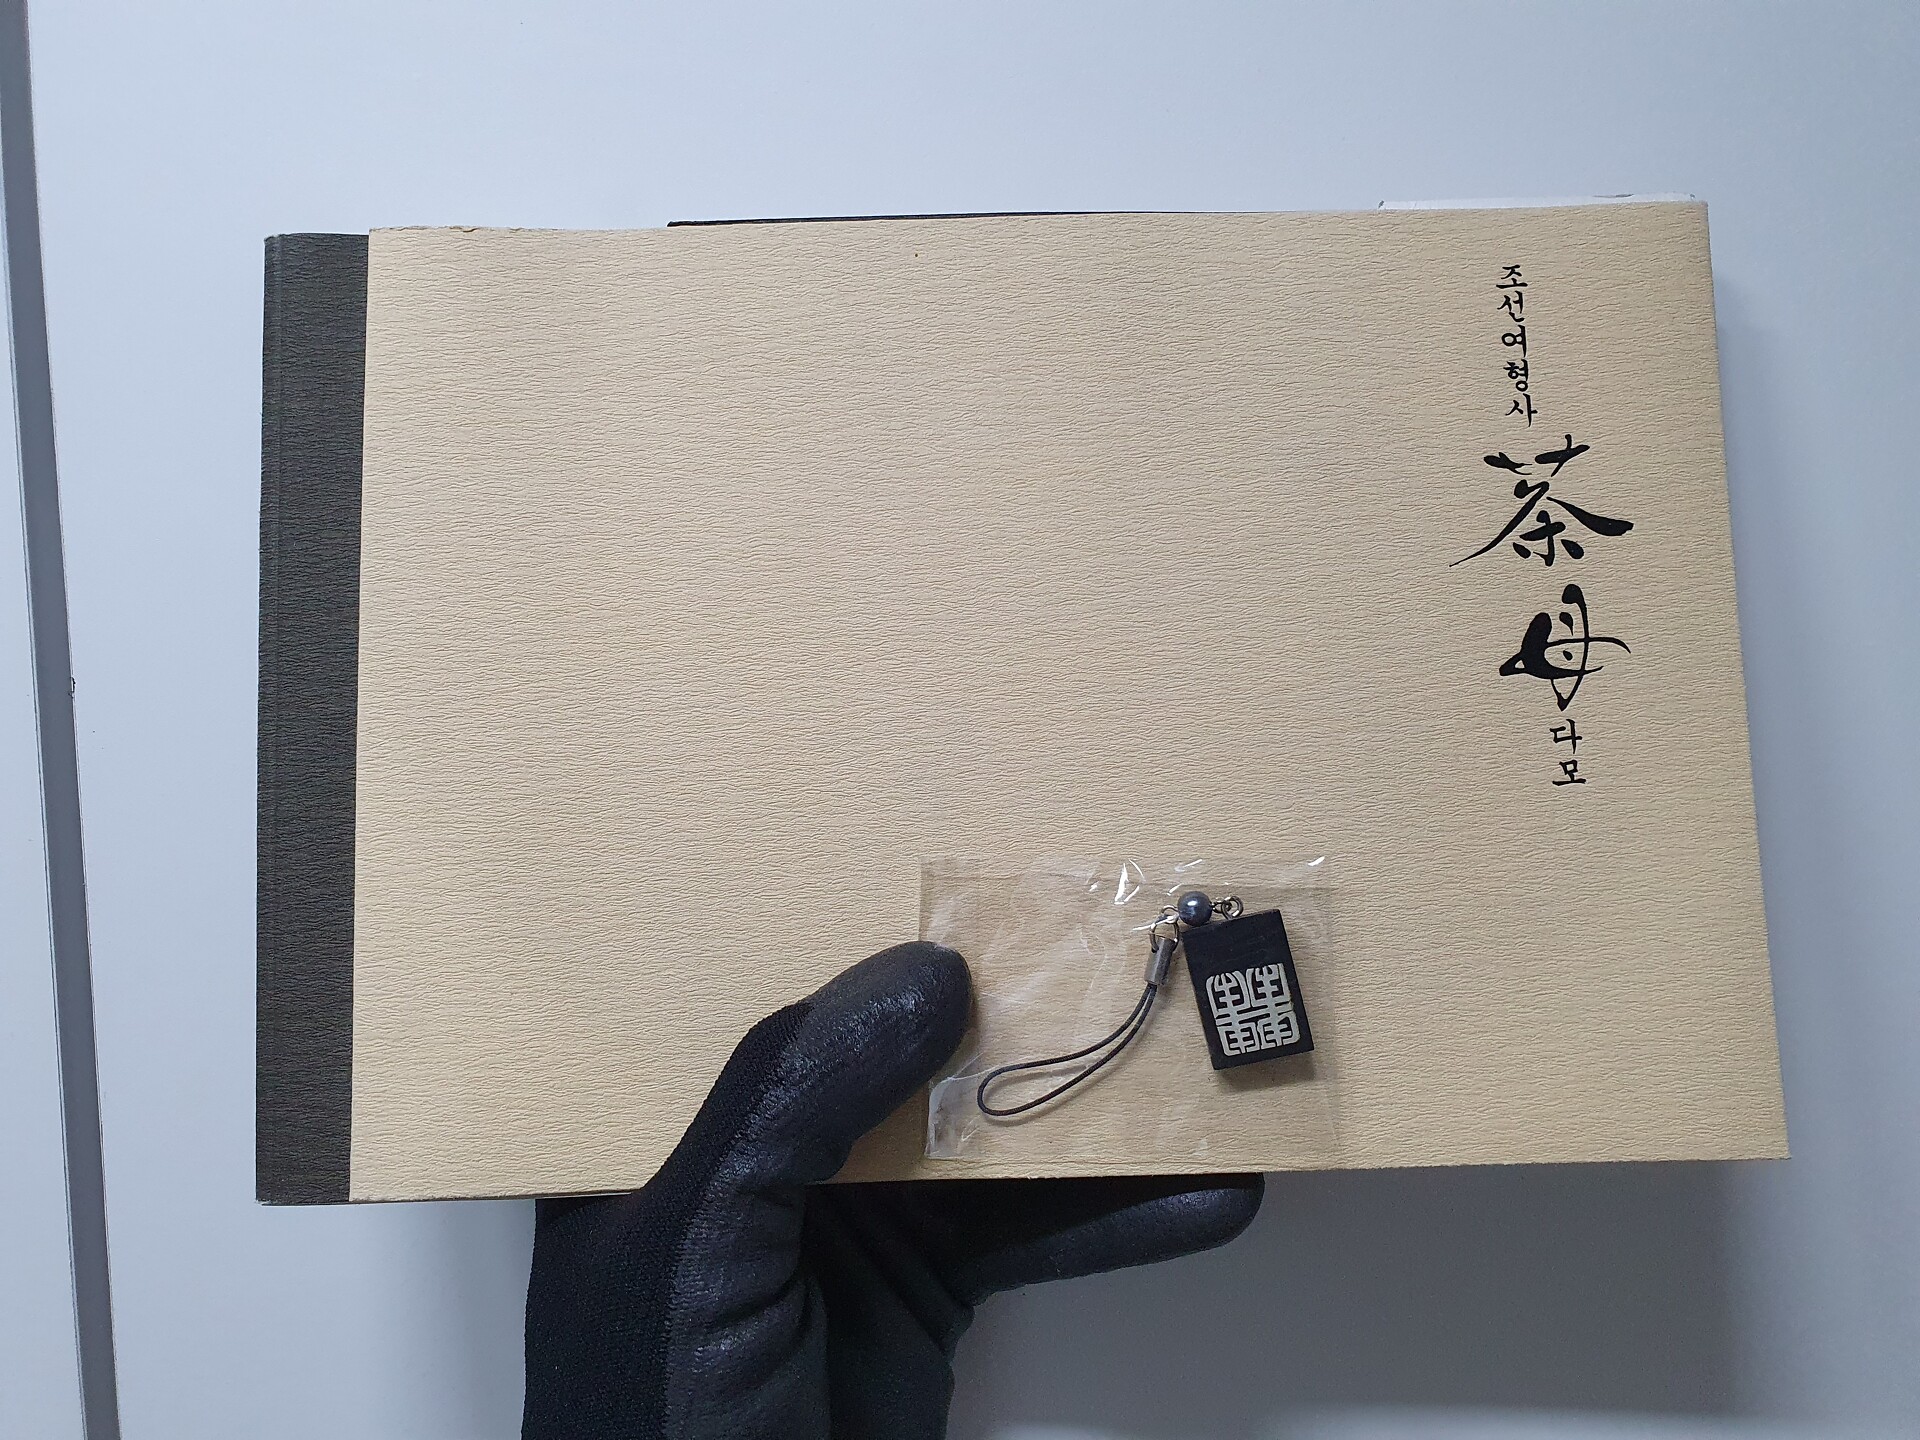 조선여형사
茶母
다모